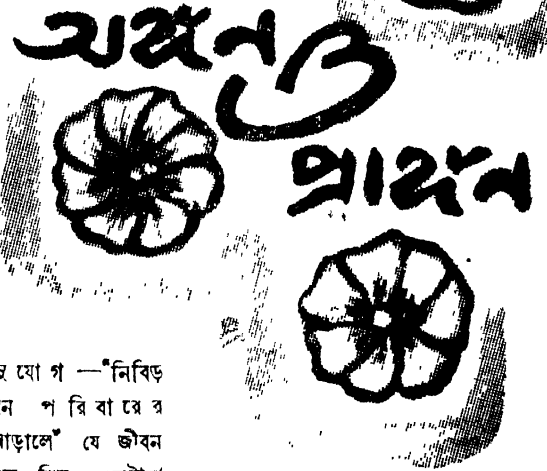 অঙ্গন ও
প্রাঙ্গন
যোগ —"নিবিড়
পরিবারের
যে জীবন